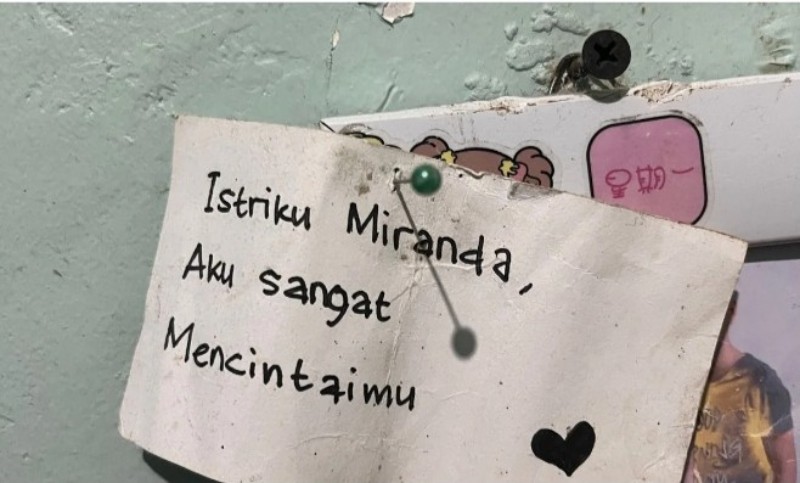 Istriku Miranda,
Aku sangat
Mencintaimu
星期一